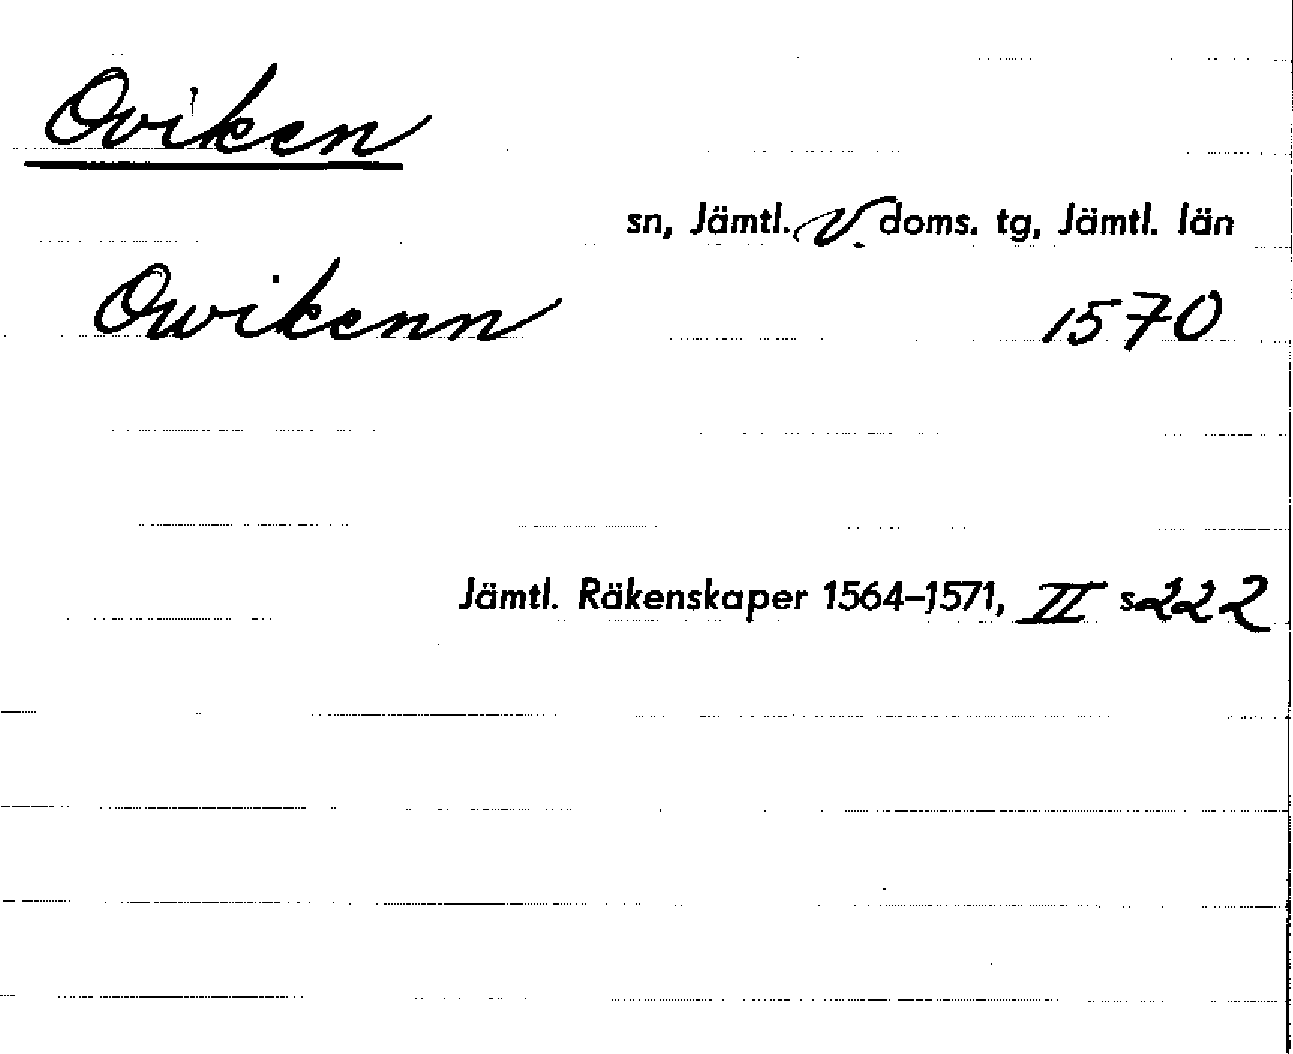 Oviken
sn, Jämtl. V. doms. tg, Jämtl. län
Owikenn 1570
Jämtl. Räkenskaper 1564–1571, II s 222